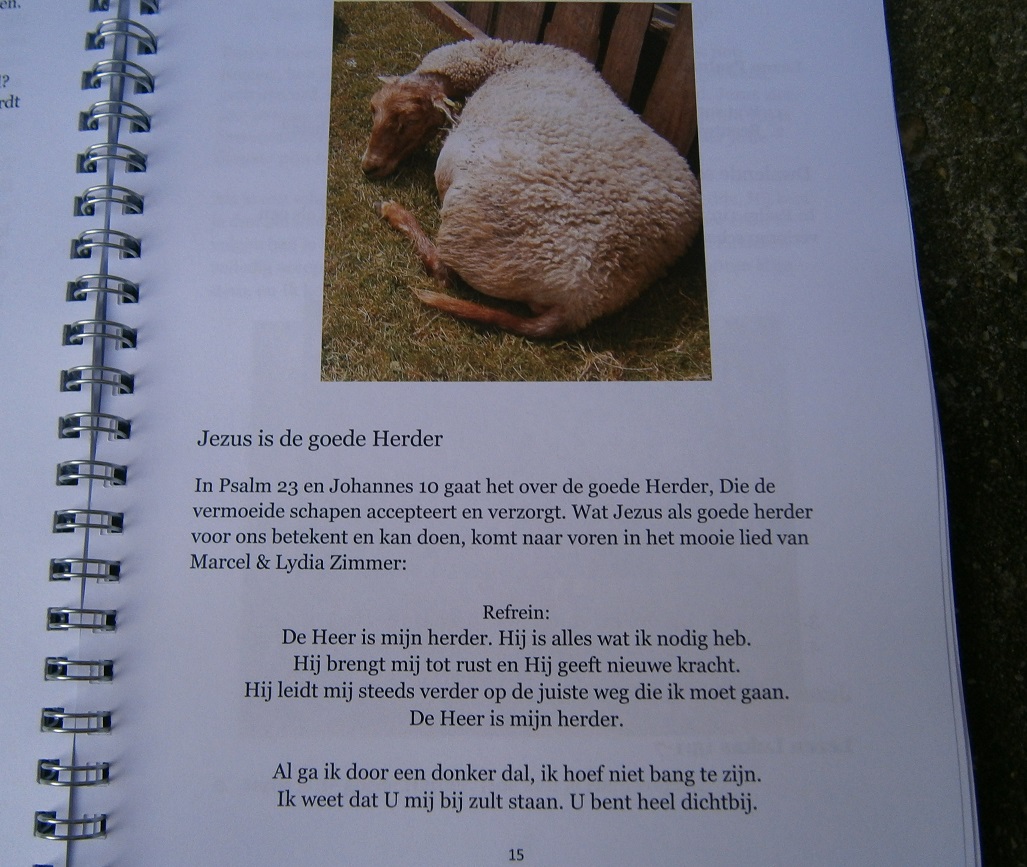 en.
?
rdt
Jezus is de goede Herder
In Psalm 23 en Johannes 10 gaat het over de goede Herder, Die de
vermoeide schapen accepteert en verzorgt. Wat Jezus als goede herder
voor ons betekent en kan doen, komt naar voren in het mooie lied van
Marcel & Lydia Zimmer:
Refrein:
De Heer is mijn herder. Hij is alles wat ik nodig heb.
Hij brengt mij tot rust en Hij geeft nieuwe kracht.
Hij leidt mij steeds verder op de juiste weg die ik moet gaan.
De Heer is mijn herder.
Al ga ik door een donker dal, ik hoef niet bang te zijn.
Ik weet dat U mij bij zult staan. U bent heel dichtbij.
15